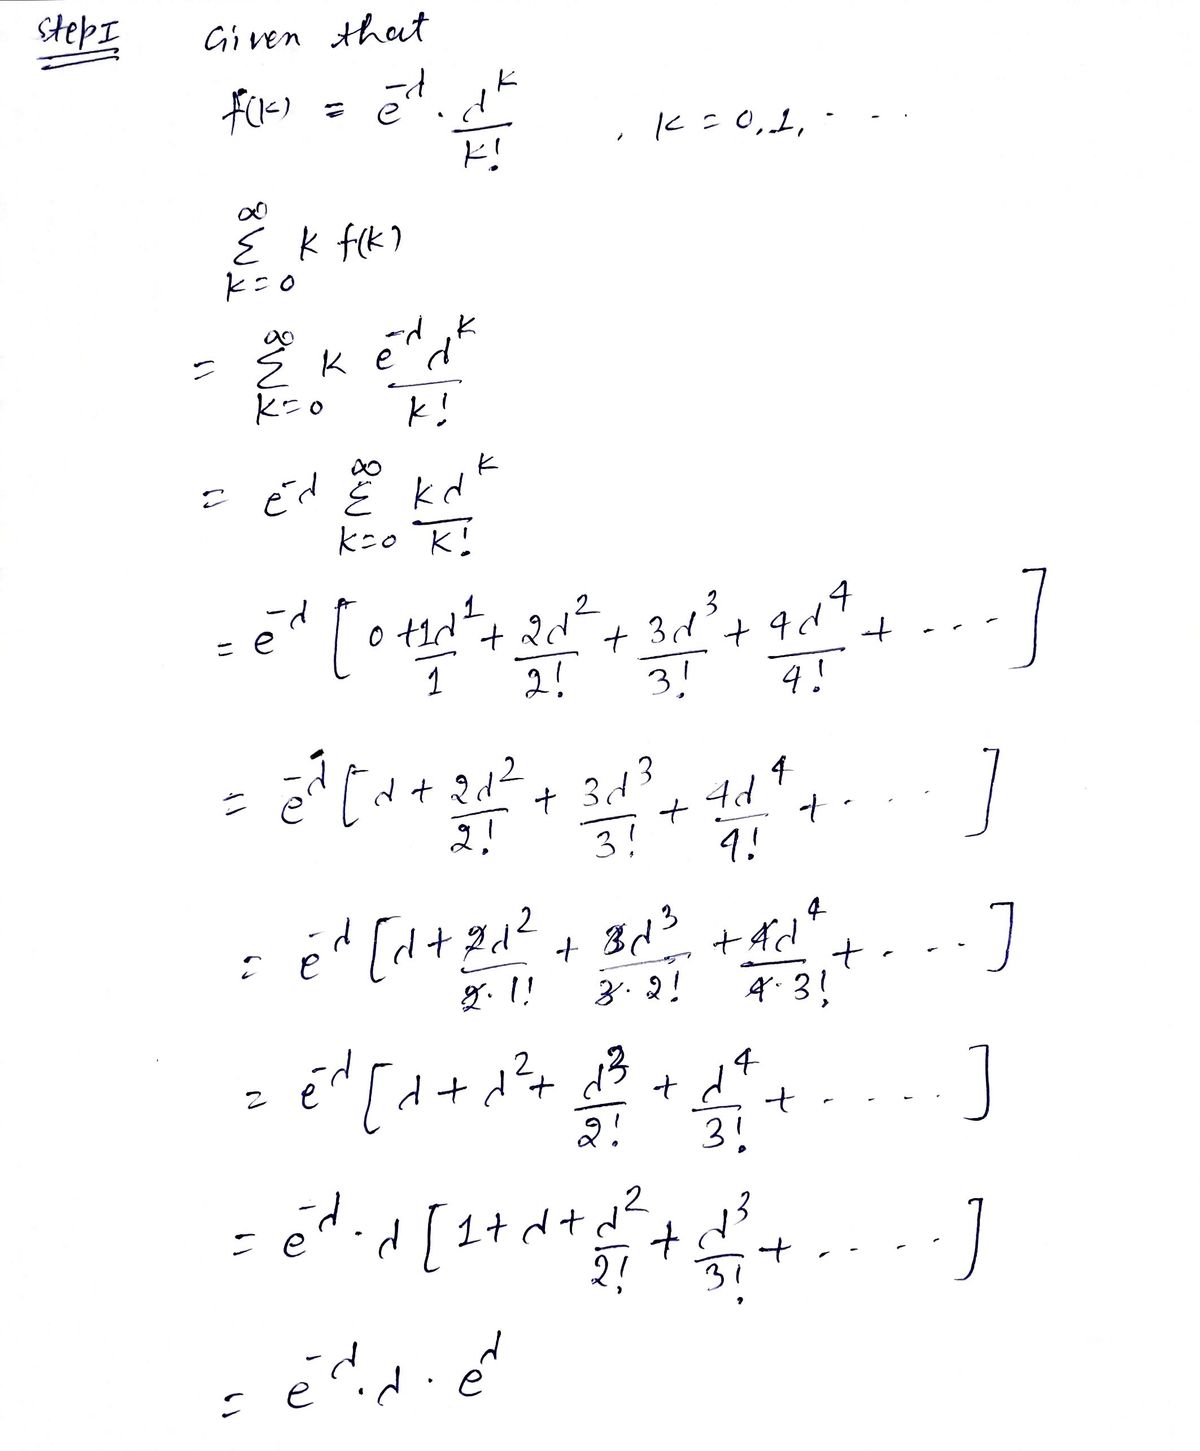 Step I Given that
f(k) = e^{-d} . d^k / k! , k = 0, 1, - - - -
∞ Σ k=0 k f(k)
= ∞ Σ k=0 k e^{-d} d^k / k!
= e^{-d} ∞ Σ k=0 k d^k / k!
= e^{-d} [ 0 + 1d^1 / 1 + 2d^2 / 2! + 3d^3 / 3! + 4d^4 / 4! + - - - ]
= e^{-d} [ d + 2d^2 / 2! + 3d^3 / 3! + 4d^4 / 4! + - - - - ]
= e^{-d} [ d + 2d^2 / 2. 1! + 3d^3 / 3. 2! + 4d^4 / 4. 3! + - - - - ]
= e^{-d} [ d + d^2 + d^3 / 2! + d^4 / 3! + - - - - - ]
= e^{-d} . d [ 1 + d + d^2 / 2! + d^3 / 3! + - - - - - ]
= e^{-d} . d . e^d